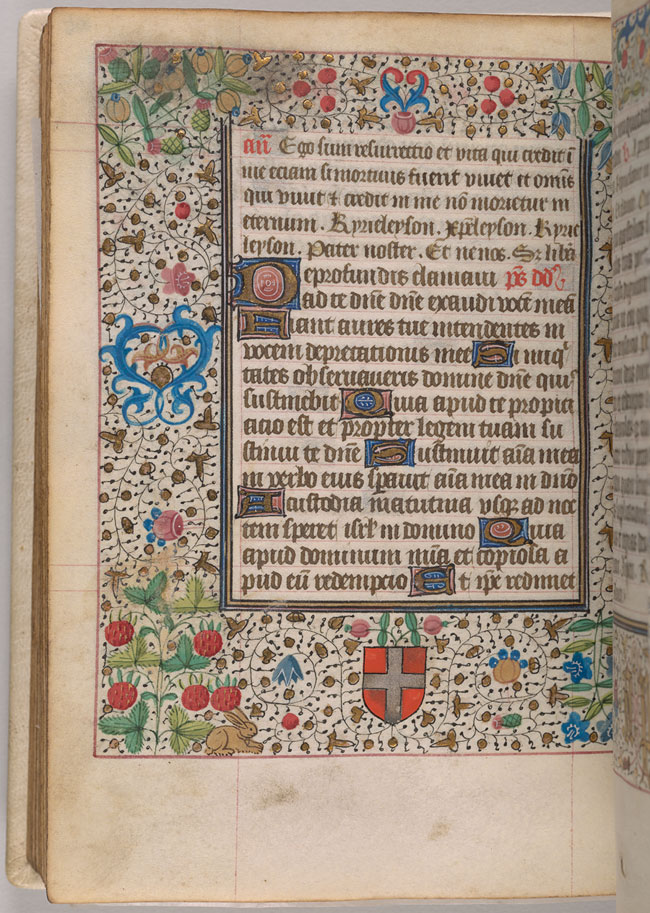 añ Ego sum resurrectio et vita qui credit ī
me eciam si mortuus fuerit vivet et omīs
qui vivit & credit in me nō morietur in
eternum. Kyrieleyson. xp̄eleyson. Kyrie
leyson. Pater noster. Et ne nos. S; liba
De profundis clamavi p̄s dd
ad te dn̄e dn̄e exaudi vocē meā
Fiant aures tue intendentes in
vocem deprecationis mee Si iniq̄
tates observaveris domine dn̄e quis
sustinebit Quia apud te propici
acio est et propter legem tuam su
stinui te dn̄e Sustinuit aīa mea
in verbo eius speravit aīa mea in dn̄o
A custodia matutina usq; ad noc
tem speret isrl̄ in domino Quia
apud dominum mīa et copiosa a
pud eū redempcio Et ipe redimet